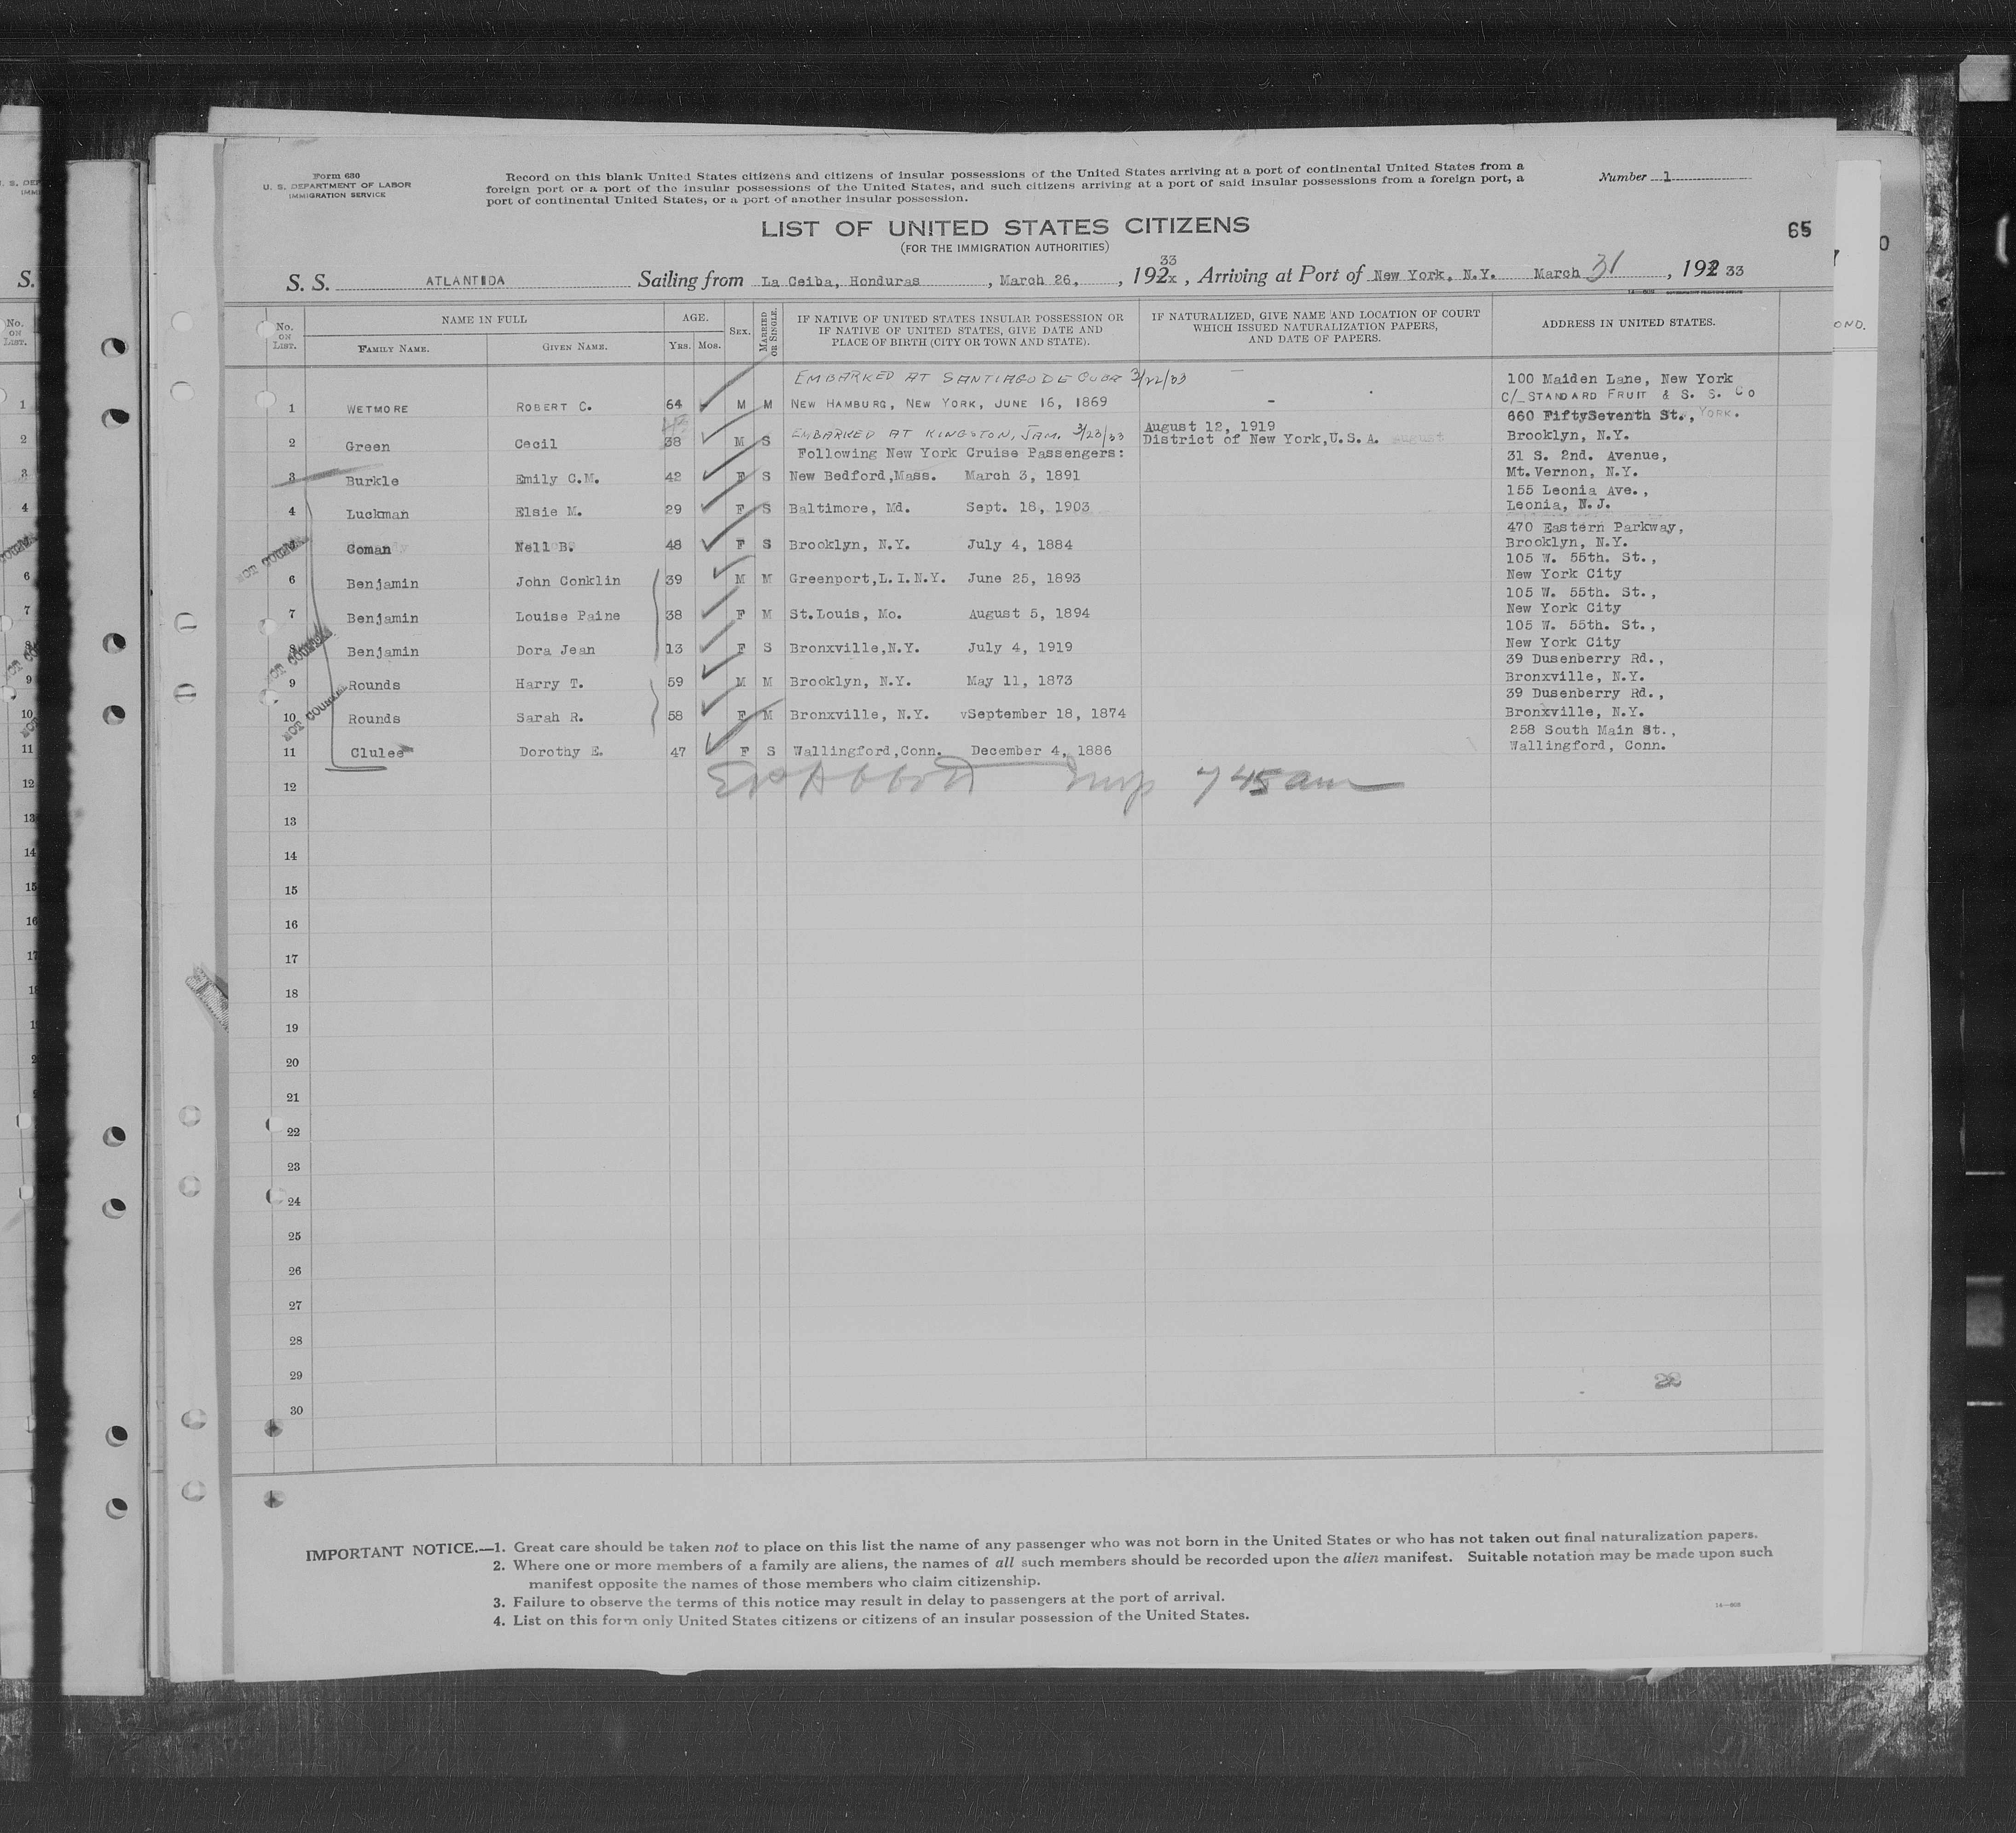 Form 630
U. S. DEPARTMENT OF LABOR
IMMIGRATION SERVICE
Record on this blank United States citizens and citizens of insular possessions of the United States arriving at a port of continental United States from a
foreign port or a port of the insular possessions of the United States, and such citizens arriving at a port of said insular possessions from a foreign port, a
port of continental United States, or a port of another insular possession.
Number 1
LIST OF UNITED STATES CITIZENS
(FOR THE IMMIGRATION AUTHORITIES)
65
S. S. ATLANTIDA Sailing from La Ceiba, Honduras , March 26, , 192x 33 , Arriving at Port of New York, N.Y. March 31 , 192 33
No. ON LIST. NAME IN FULL AGE. SEX. MARRIED OR SINGLE. IF NATIVE OF UNITED STATES INSULAR POSSESSION OR IF NATIVE OF UNITED STATES, GIVE DATE AND PLACE OF BIRTH (CITY OR TOWN AND STATE). IF NATURALIZED, GIVE NAME AND LOCATION OF COURT WHICH ISSUED NATURALIZATION PAPERS, AND DATE OF PAPERS. ADDRESS IN UNITED STATES.
FAMILY NAME. GIVEN NAME. YRS. MOS.
EMBARKED AT SANTIAGO DE CUBA 3/22/33 100 Maiden Lane, New York
1 WETMORE ROBERT C. 64 M M NEW HAMBURG, NEW YORK, JUNE 16, 1869 - C/_STANDARD FRUIT & S. S. Co
YORK.
660 FiftySeventh St.,
2 Green Cecil 38 M S EMBARKED AT KINGSTON, JAM. 3/23/33 August 12, 1919 District of New York,U.S.A. Brooklyn, N.Y.
Following New York Cruise Passengers:
31 S. 2nd. Avenue,
3 Burkle Emily C.M. 42 F S New Bedford,Mass. March 3, 1891 Mt.Vernon, N.Y.
155 Leonia Ave.,
4 Luckman Elsie M. 29 F S Baltimore, Md. Sept. 18, 1903 Leonia, N.J.
470 Eastern Parkway,
Coman Nell B. 48 F S Brooklyn, N.Y. July 4, 1884 Brooklyn, N.Y.
NOT COUNTED
105 W. 55th. St.,
6 Benjamin John Conklin 39 M M Greenport,L.I.N.Y. June 25, 1893 New York City
105 W. 55th. St.,
7 Benjamin Louise Paine 38 F M St.Louis, Mo. August 5, 1894 New York City
105 W. 55th. St.,
8 Benjamin Dora Jean 13 F S Bronxville,N.Y. July 4, 1919 New York City
NOT COUNTED
39 Dusenberry Rd.,
9 Rounds Harry T. 59 M M Brooklyn, N.Y. May 11, 1873 Bronxville, N.Y.
39 Dusenberry Rd.,
10 Rounds Sarah R. 58 F M Bronxville, N.Y. vSeptember 18, 1874 Bronxville, N.Y.
NOT COUNTED
258 South Main St.,
11 Clulee Dorothy E. 47 F S Wallingford,Conn. December 4, 1886 Wallingford, Conn.
12 7 45 am
13
14
15
16
17
18
19
20
21
22
23
24
25
26
27
28
29
30
IMPORTANT NOTICE.—1. Great care should be taken not to place on this list the name of any passenger who was not born in the United States or who has not taken out final naturalization papers.
2. Where one or more members of a family are aliens, the names of all such members should be recorded upon the alien manifest. Suitable notation may be made upon such
manifest opposite the names of those members who claim citizenship.
3. Failure to observe the terms of this notice may result in delay to passengers at the port of arrival.
4. List on this form only United States citizens or citizens of an insular possession of the United States.
14—608